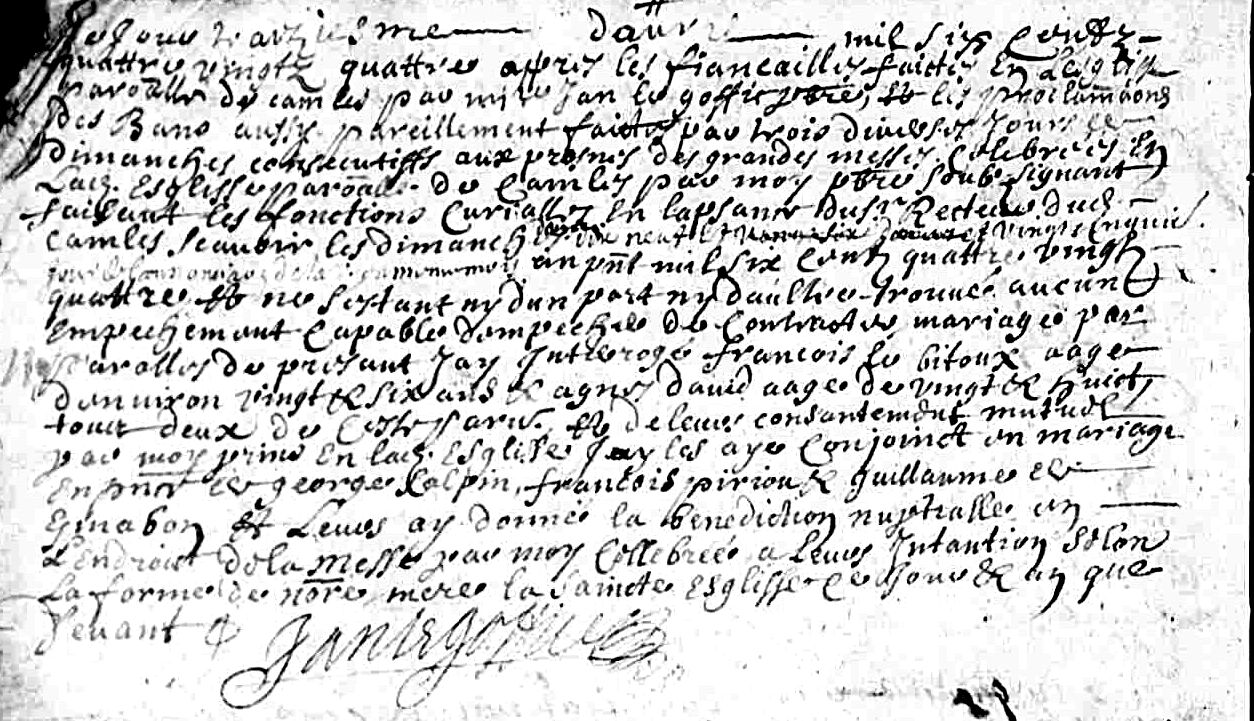 Ce Jour traiziesme d'auvril mil six Centz
quattre vingtz quattre appres les fiancailles faictes En L'esglise
paroaille de camles par mire Jan le goffic pbre, et les proclamaons
Des Bans aussy pareillement faictes par trois diverses Jours de
Dimanches consecutiffs aux prosnes des grandes messes Celebrées En
Lad. Esglisse paroalle de Camles par moy pbre soubsignant
faisant les fonctions Curialles En l'apsance du sr Recteur dud.
Camles scavoir les dimanches dix neuf et vingt cinquie.
an pnt mil six Centz quattre vingtz
quattre et ne s'estant ny d'un part ny d'aultre trouvé aucun
Empechement Capable d'empecher de Contracter mariage par
parolles de présant Jay Interogé francois le bitoux aagé
d'anviron vingt & six ans & agnes david aagé de vingt & huict
tous deux de Ceste paroisse, et de leurs consantement mutuel
par moy prins En lad. Esglisse Je les aye Conjoinct en mariage
En pnce de george Calpin, francois piriou & guillaume
et Leurs ay donné la benediction nuptialle en
L'endroict de la Messe par moy Cellebrée a Leurs Intantion selon
La forme de nore mere la saincte Esglisse ce Jour & an que
devant
Jan le goffic